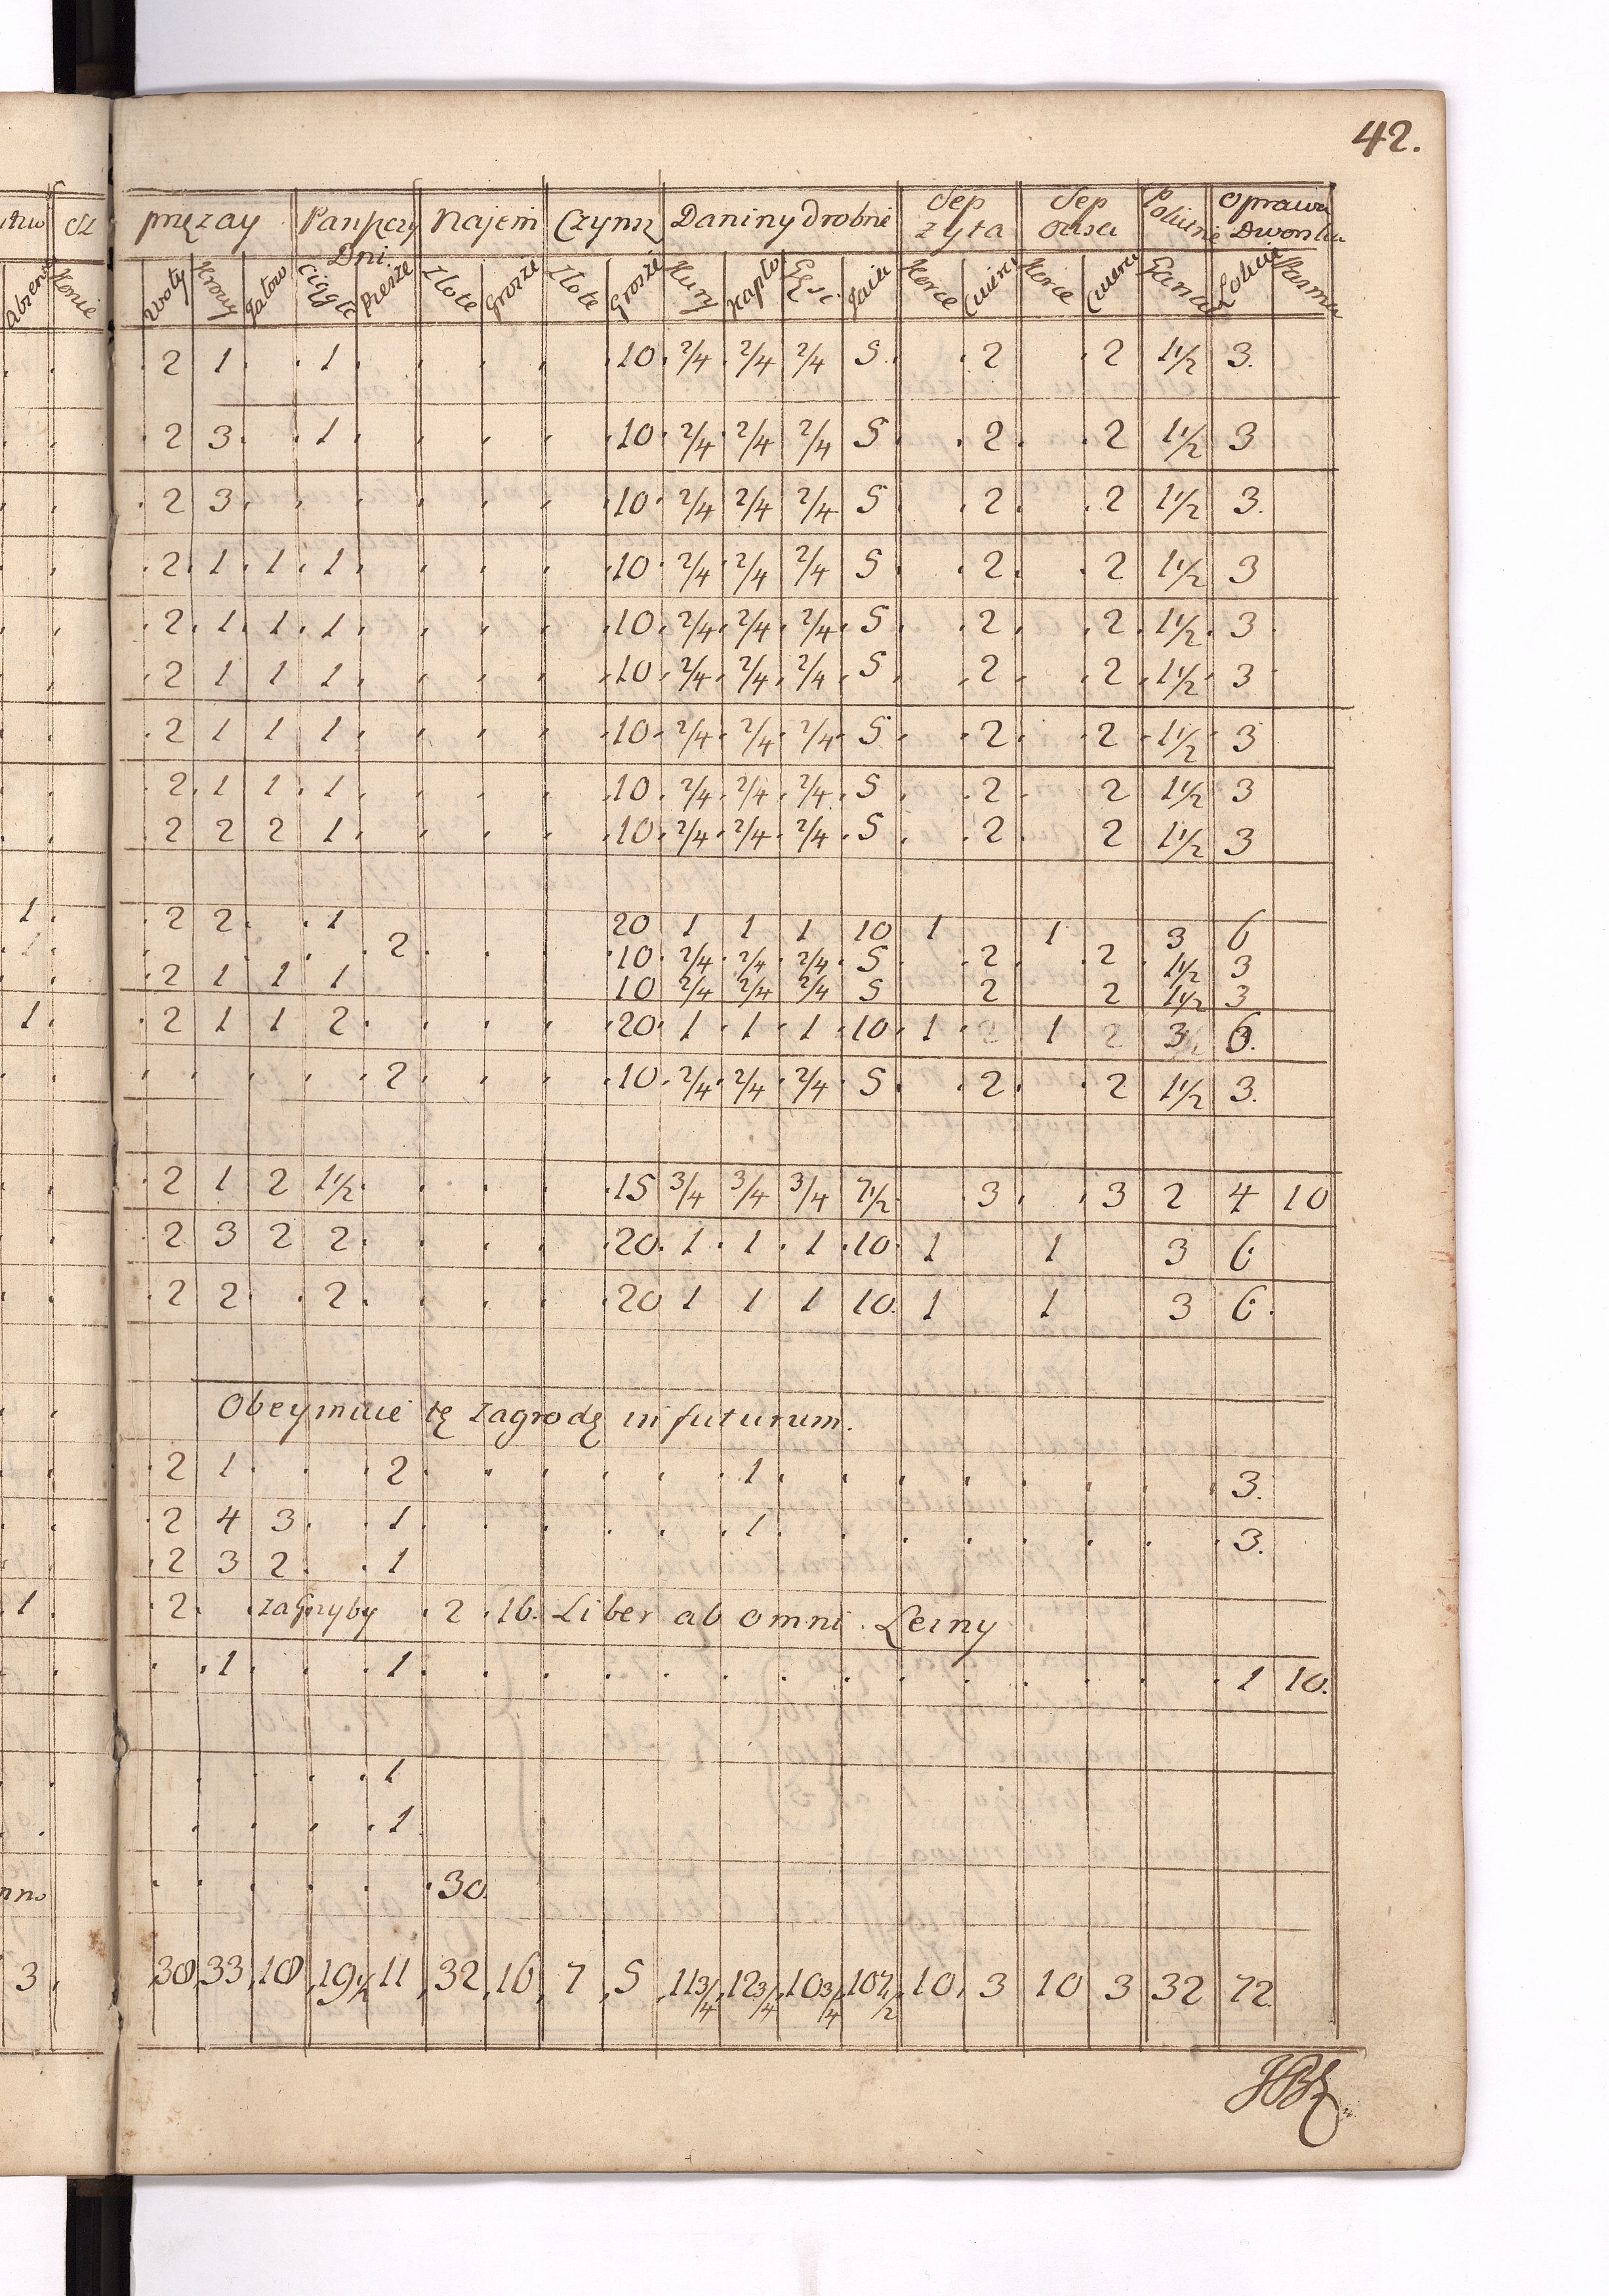 42.
przay Panpczy Dni Najem Czynsz Daniny drobne Sep zyta Sep owsa Oprawa
Woły Krowy Jałow Ciągłe Piesze Złote Grosze Złote Grosze Kury Kapło Gęsi Jaia Korce Cwierci Korce Cwierci Łokcie
2 1 1 10 2/4 2/4 2/4 5 2 2 1 1/2 3.
2 3 1 10 2/4 2/4 2/4 5 2 2 1 1/2 3
2 3 10 2/4 2/4 2/4 5 2 2 1 1/2 3.
2 1 1 1 10 2/4 2/4 2/4 5 2 2 1 1/2 3
2 1 1 1 10 2/4 2/4 2/4 5 2 2 1 1/2 3
2 1 1 1 10 2/4 2/4 2/4 5 2 2 1 1/2 3
2 1 1 1 10 2/4 2/4 2/4 5 2 2 1 1/2 3
2 1 1 1 10 2/4 2/4 2/4 5 2 2 1 1/2 3
2 2 2 1 10 2/4 2/4 2/4 5 2 2 1 1/2 3
1 2 2 1 20 1 1 1 10 1 1 3 6
1 2 10 2/4 2/4 2/4 5 2 2 1 1/2 3
2 1 1 1 10 2/4 2/4 2/4 5 2 2 1 1/2 3
1 2 1 1 2 20 1 1 1 10 1 1 3 6.
2 10 2/4 2/4 2/4 5 2 2 1 1/2 3.
2 1 2 1 1/2 15 3/4 3/4 3/4 7 1/2 3 3 2 4 10
2 3 2 2 20 1 1 1 10 1 1 3 6
2 2 2 20 1 1 1 10 1 1 3 6
Obeymuie tę zagrodę in futurum.
2 1 2 1 3.
2 4 3 1 1 3.
2 3 2 1
1 2 zaGrzyby 2 16. Liber ab omni. Leśny
1 1 1 10.
1
1
30
3 38 33 18 19 1/2 11 32 16 7 5 11 3/4 12 3/4 10 3/4 107 1/2 10 3 10 3 32 72